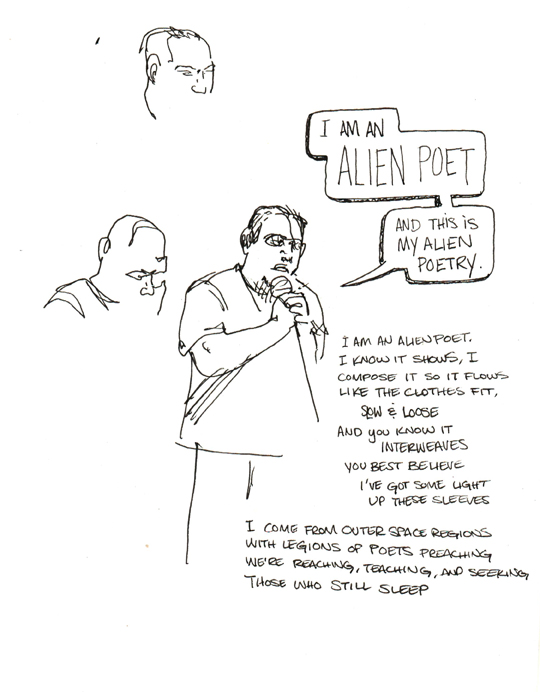 I AM AN
ALIEN POET
AND THIS IS
MY ALIEN
POETRY.
I AM AN ALIEN POET.
I KNOW IT SHOWS, I
COMPOSE IT SO IT FLOWS
LIKE THE CLOTHES FIT,
SLOW & LOOSE
AND YOU KNOW IT
INTERWEAVES
YOU BEST BELIEVE
I'VE GOT SOME LIGHT
UP THESE SLEEVES
I COME FROM OUTER SPACE REGIONS
WITH LEGIONS OF POETS PREACHING
WE'RE REACHING, TEACHING, AND SEEKING
THOSE WHO STILL SLEEP